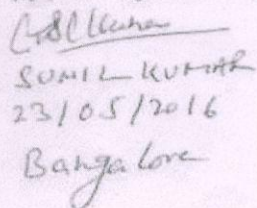 SUNIL KUMAR
23/05/2016
Bangalore